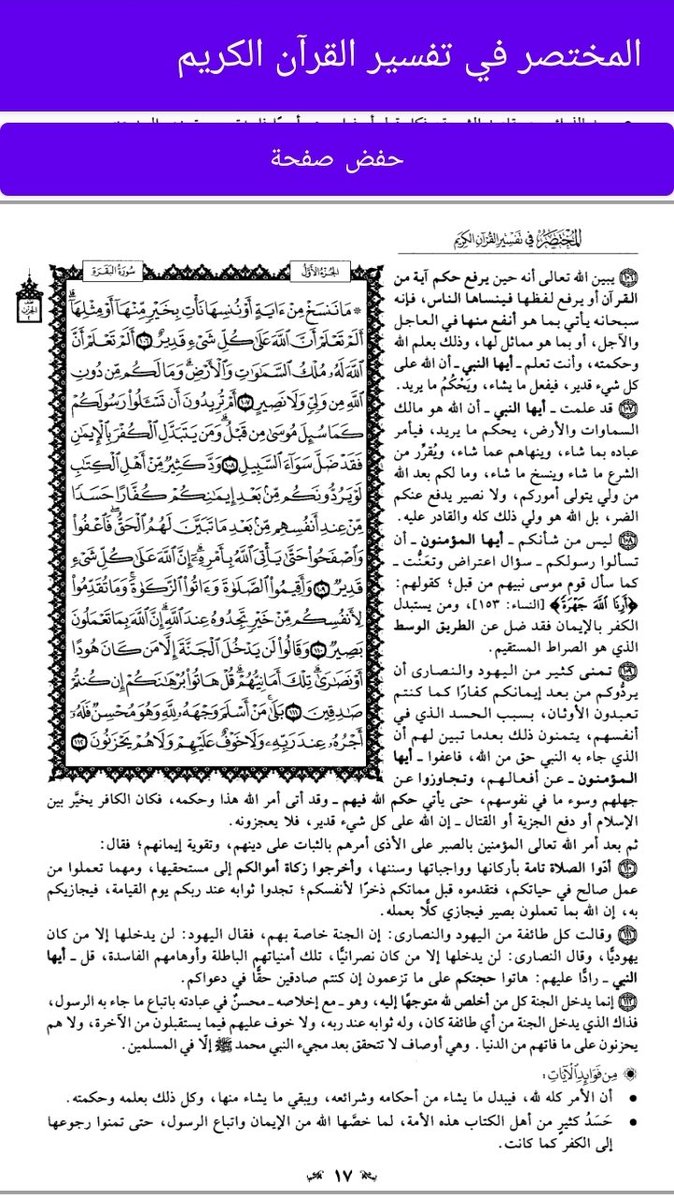 المختصر في تفسير القرآن الكريم
حفض صفحة
المختصر في تفسير القرآن الكريم
الجزء الأول
سورة البقرة
۞ مَا نَنسَخْ مِنْ ءَايَةٍ أَوْ نُنسِهَا نَأْتِ بِخَيْرٍ مِّنْهَآ أَوْ مِثْلِهَآۗ
أَلَمْ تَعْلَمْ أَنَّ ٱللَّهَ عَلَىٰ كُلِّ شَىْءٍ قَدِيرٌ ١٠٦ أَلَمْ تَعْلَمْ أَنَّ
ٱللَّهَ لَهُۥ مُلْكُ ٱلسَّمَٰوَٰتِ وَٱلْأَرْضِۗ وَمَا لَكُم مِّن دُونِ
ٱللَّهِ مِن وَلِىٍّ وَلَا نَصِيرٍ ١٠٧ أَمْ تُرِيدُونَ أَن تَسْـَٔلُوا۟ رَسُولَكُمْ
كَمَا سُئِلَ مُوسَىٰ مِن قَبْلُۗ وَمَن يَتَبَدَّلِ ٱلْكُفْرَ بِٱلْإِيمَٰنِ
فَقَدْ ضَلَّ سَوَآءَ ٱلسَّبِيلِ ١٠٨ وَدَّ كَثِيرٌ مِّنْ أَهْلِ ٱلْكِتَٰبِ
لَوْ يَرُدُّونَكُم مِّنۢ بَعْدِ إِيمَٰنِكُمْ كُفَّارًا حَسَدًا
مِّنْ عِندِ أَنفُسِهِم مِّنۢ بَعْدِ مَا تَبَيَّنَ لَهُمُ ٱلْحَقُّۖ فَٱعْفُوا۟
وَٱصْفَحُوا۟ حَتَّىٰ يَأْتِىَ ٱللَّهُ بِأَمْرِهِۦٓۗ إِنَّ ٱللَّهَ عَلَىٰ كُلِّ شَىْءٍ
قَدِيرٌ ١٠٩ وَأَقِيمُوا۟ ٱلصَّلَوٰةَ وَءَاتُوا۟ ٱلزَّكَوٰةَۚ وَمَا تُقَدِّمُوا۟
لِأَنفُسِكُم مِّنْ خَيْرٍ تَجِدُوهُ عِندَ ٱللَّهِۗ إِنَّ ٱللَّهَ بِمَا تَعْمَلُونَ
بَصِيرٌ ١١٠ وَقَالُوا۟ لَن يَدْخُلَ ٱلْجَنَّةَ إِلَّا مَن كَانَ هُودًا
أَوْ نَصَٰرَىٰۗ تِلْكَ أَمَانِيُّهُمْۗ قُلْ هَاتُوا۟ بُرْهَٰنَكُمْ إِن كُنتُمْ
صَٰدِقِينَ ١١١ بَلَىٰ مَنْ أَسْلَمَ وَجْهَهُۥ لِلَّهِ وَهُوَ مُحْسِنٌ فَلَهُۥٓ
أَجْرُهُۥ عِندَ رَبِّهِۦ وَلَا خَوْفٌ عَلَيْهِمْ وَلَا هُمْ يَحْزَنُونَ ١١٢
١٠٦ يبين الله تعالى أنه حين يرفع حكم آية من
القرآن أو يرفع لفظها فينساها الناس، فإنه
سبحانه يأتي بما هو أنفع منها في العاجل
والآجل، أو بما هو مماثل لها، وذلك بعلم الله
وحكمته، وأنت تعلم ـ أيها النبي ـ أن الله على
كل شيء قدير، فيفعل ما يشاء، ويَحْكُمُ ما يريد.
١٠٧ قد علمت ـ أيها النبي ـ أن الله هو مالك
السماوات والأرض، يحكم ما يريد، فيأمر
عباده بما شاء، وينهاهم عما شاء، ويُقرِّر من
الشرع ما شاء وينسخ ما شاء، وما لكم بعد الله
من ولي يتولى أموركم، ولا نصير يدفع عنكم
الضر، بل الله هو ولي ذلك كله والقادر عليه.
١٠٨ ليس من شأنكم ـ أيها المؤمنون ـ أن
تسألوا رسولكم ـ سؤال اعتراض وتعنُّت ـ
كما سأل قوم موسى نبيهم من قبل؛ كقولهم:
﴿أَرِنَا ٱللَّهَ جَهْرَةً﴾ [النساء: ١٥٣]، ومن يستبدل
الكفر بالإيمان فقد ضل عن الطريق الوسط
الذي هو الصراط المستقيم.
١٠٩ تمنى كثير من اليهود والنصارى أن
يردُّوكم من بعد إيمانكم كفارًا كما كنتم
تعبدون الأوثان، بسبب الحسد الذي في
أنفسهم، يتمنون ذلك بعدما تبين لهم أن
الذي جاء به النبي حق من الله، فاعفوا ـ أيها
المؤمنون ـ عن أفعالهم، وتجاوزوا عن
جهلهم وسوء ما في نفوسهم، حتى يأتي حكم الله فيهم ـ وقد أتى أمر الله هذا وحكمه، فكان الكافر يخيَّر بين
الإسلام أو دفع الجزية أو القتال ـ إن الله على كل شيء قدير، فلا يعجزونه.
ثم بعد أمر الله تعالى المؤمنين بالصبر على الأذى أمرهم بالثبات على دينهم، وتقوية إيمانهم؛ فقال:
١١٠ أدّوا الصلاة تامة بأركانها وواجباتها وسننها، وأخرجوا زكاة أموالكم إلى مستحقيها، ومهما تعملوا من
عمل صالح في حياتكم، فتقدموه قبل مماتكم ذخرًا لأنفسكم؛ تجدوا ثوابه عند ربكم يوم القيامة، فيجازيكم
به، إن الله بما تعملون بصير فيجازي كلًّا بعمله.
١١١ وقالت كل طائفة من اليهود والنصارى: إن الجنة خاصة بهم، فقال اليهود: لن يدخلها إلا من كان
يهوديًّا، وقال النصارى: لن يدخلها إلا من كان نصرانيًّا، تلك أمنياتهم الباطلة وأوهامهم الفاسدة، قل ـ أيها
النبي ـ رادًّا عليهم: هاتوا حجتكم على ما تزعمون إن كنتم صادقين حقًّا في دعواكم.
١١٢ إنما يدخل الجنة كل من أخلص لله متوجهًا إليه، وهو ـ مع إخلاصه ـ محسنٌ في عبادته باتباع ما جاء به الرسول،
فذاك الذي يدخل الجنة من أي طائفة كان، وله ثوابه عند ربه، ولا خوف عليهم فيما يستقبلون من الآخرة، ولا هم
يحزنون على ما فاتهم من الدنيا. وهي أوصاف لا تتحقق بعد مجيء النبي محمد ﷺ إلّا في المسلمين.
من فوائد الآيات:
• أن الأمر كله لله، فيبدل ما يشاء من أحكامه وشرائعه، ويبقي ما يشاء منها، وكل ذلك بعلمه وحكمته.
• حَسَدُ كثيرٍ من أهل الكتاب هذه الأمة، لما خصَّها الله من الإيمان واتباع الرسول، حتى تمنوا رجوعها
إلى الكفر كما كانت.
١٧